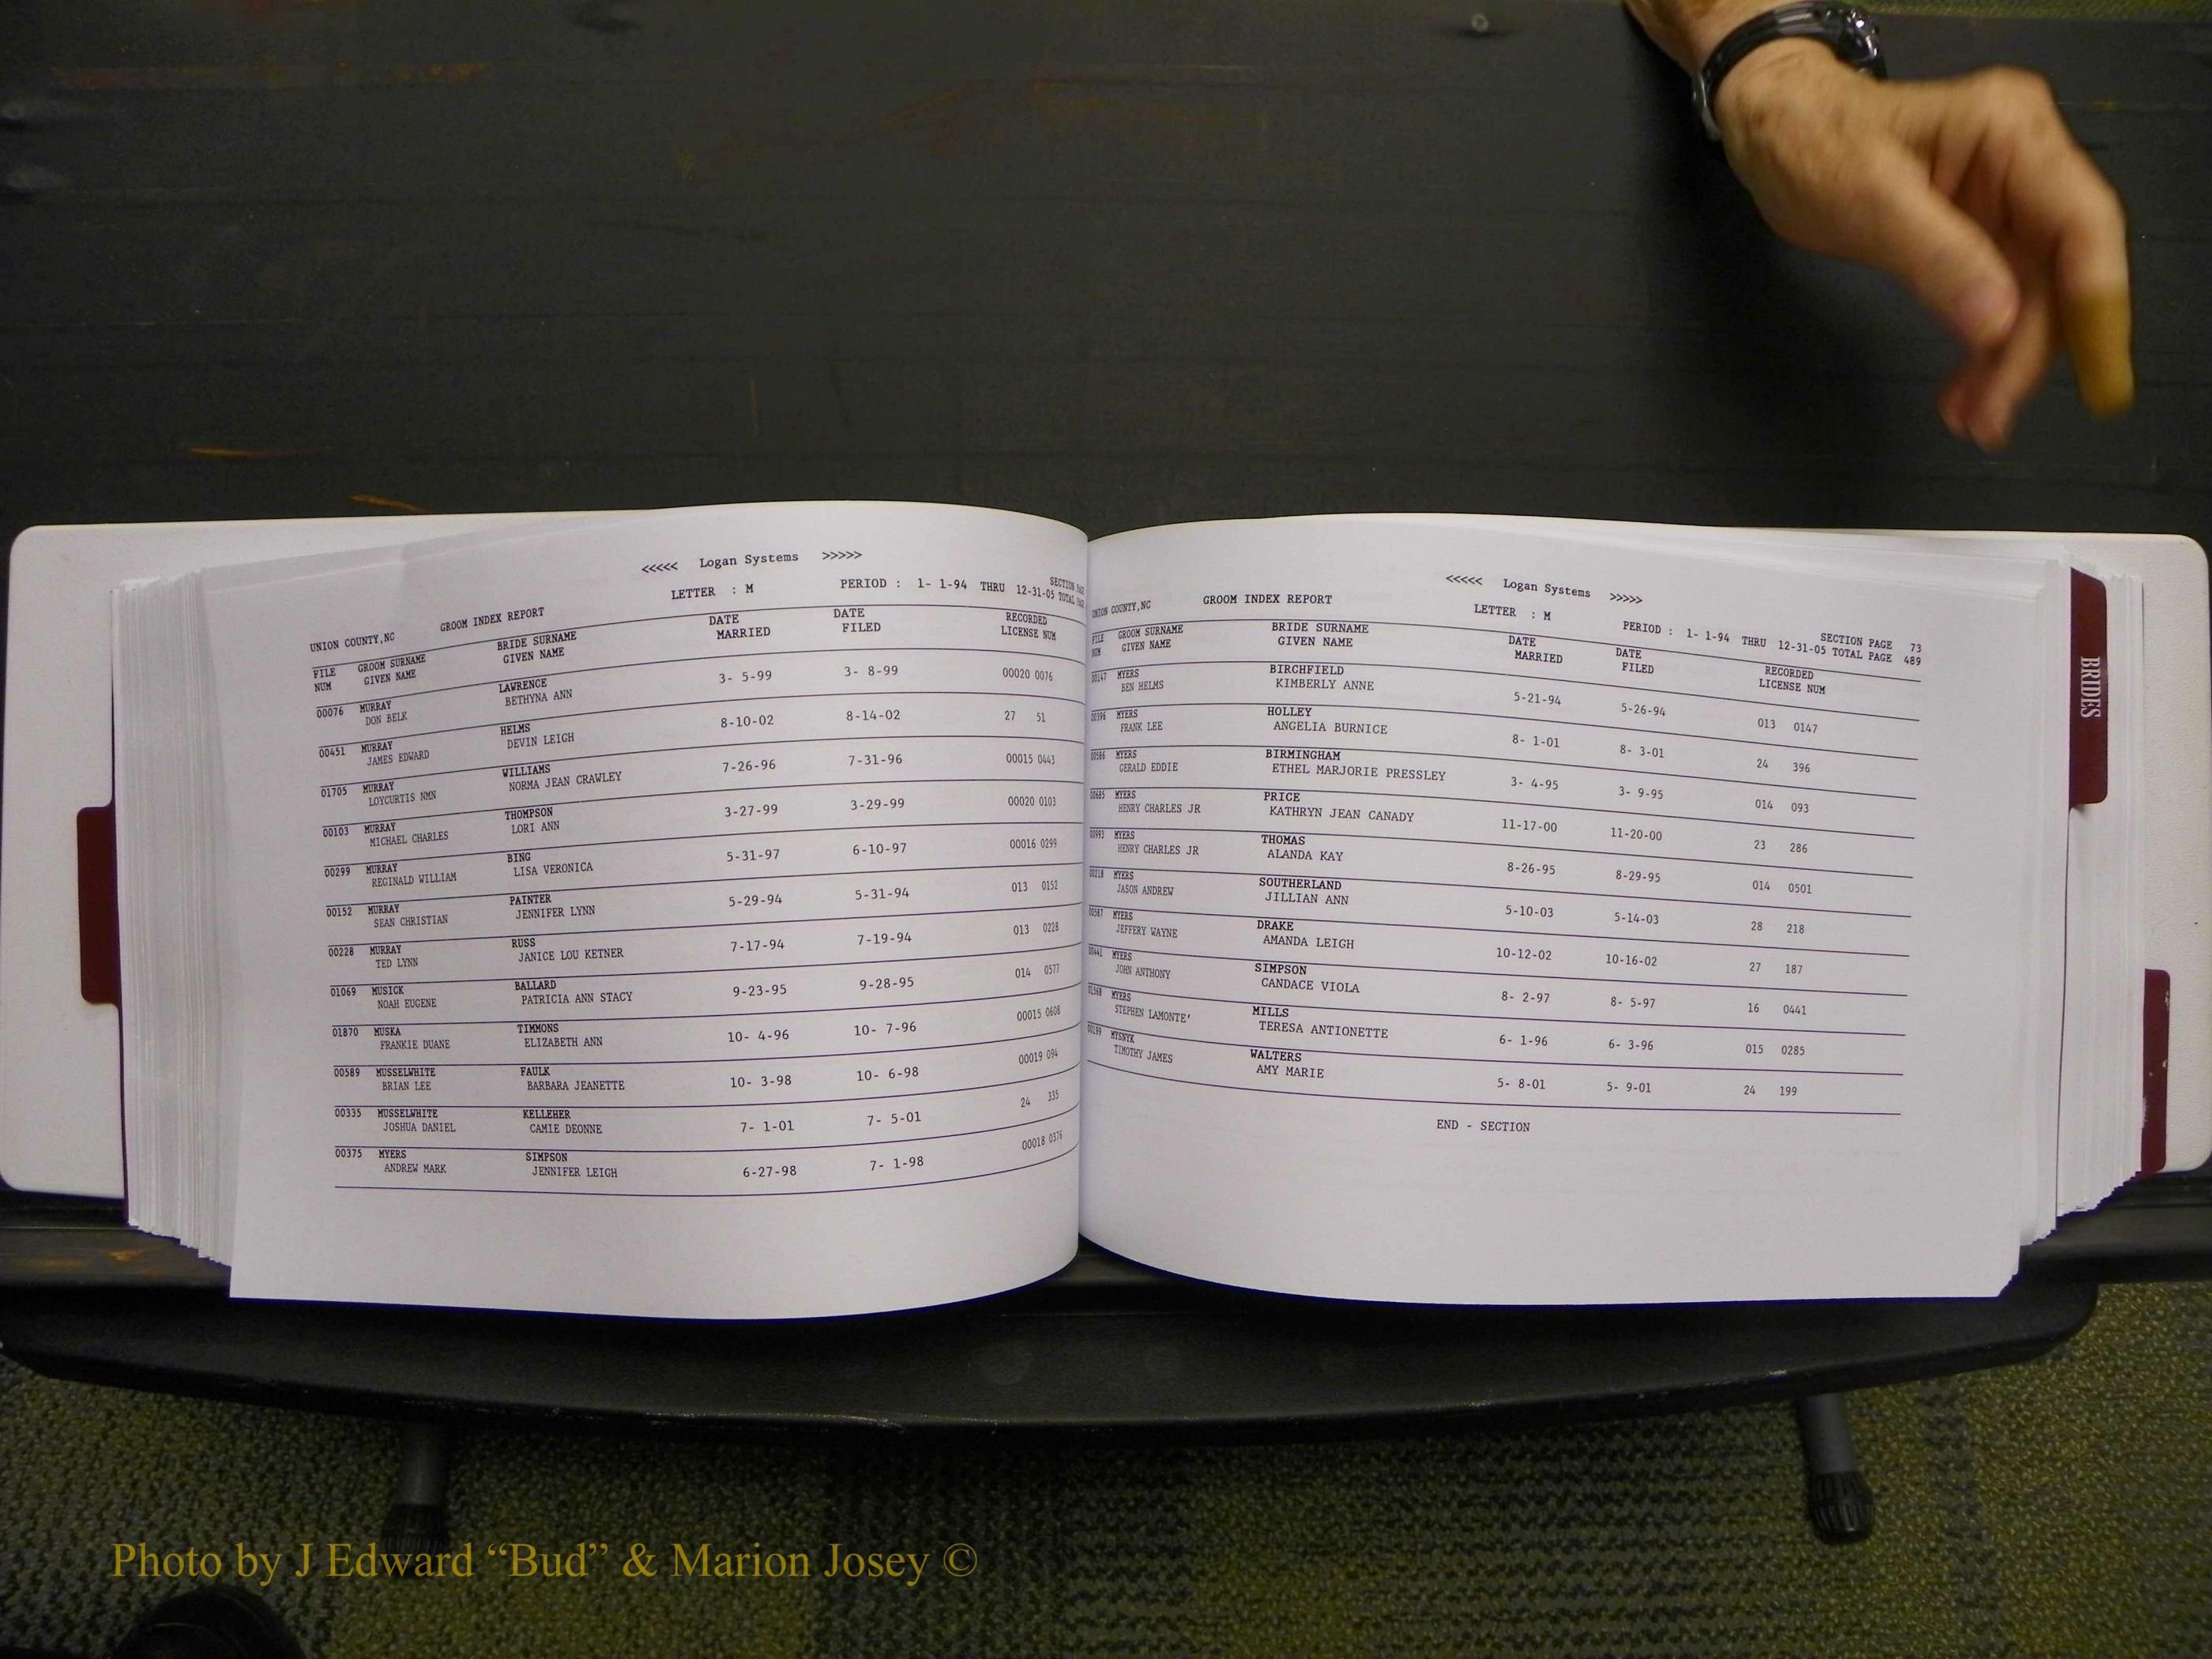 <<<<< Logan Systems >>>>>
UNION COUNTY,NC GROOM INDEX REPORT LETTER : M PERIOD : 1- 1-94 THRU 12-31-05 SECTION TOTAL
FILE GROOM SURNAME BRIDE SURNAME DATE DATE RECORDED
NUM GIVEN NAME GIVEN NAME MARRIED FILED LICENSE NUM
00076 MURRAY LAWRENCE 3- 5-99 3- 8-99 00020 0076
DON BELK BETHYNA ANN
00451 MURRAY HELMS 8-10-02 8-14-02 27 51
JAMES EDWARD DEVIN LEIGH
01705 MURRAY WILLIAMS 7-26-96 7-31-96 00015 0443
LOYCURTIS NMN NORMA JEAN CRAWLEY
00103 MURRAY THOMPSON 3-27-99 3-29-99 00020 0103
MICHAEL CHARLES LORI ANN
00299 MURRAY BING 5-31-97 6-10-97 00016 0299
REGINALD WILLIAM LISA VERONICA
00152 MURRAY PAINTER 5-29-94 5-31-94 013 0152
SEAN CHRISTIAN JENNIFER LYNN
00228 MURRAY RUSS 7-17-94 7-19-94 013 0228
TED LYNN JANICE LOU KETNER
01069 MUSICK BALLARD 9-23-95 9-28-95 014 0577
NOAH EUGENE PATRICIA ANN STACY
01870 MUSKA TIMMONS 10- 4-96 10- 7-96 00015 0608
FRANKIE DUANE ELIZABETH ANN
00589 MUSSELWHITE FAULK 10- 3-98 10- 6-98 00019 094
BRIAN LEE BARBARA JEANETTE
00335 MUSSELWHITE KELLEHER 7- 1-01 7- 5-01 24 335
JOSHUA DANIEL CAMIE DEONNE
00375 MYERS SIMPSON 6-27-98 7- 1-98 00018 0376
ANDREW MARK JENNIFER LEIGH
<<<<< Logan Systems >>>>>
UNION COUNTY,NC GROOM INDEX REPORT LETTER : M PERIOD : 1- 1-94 THRU 12-31-05 SECTION PAGE 73
TOTAL PAGE 489
FILE GROOM SURNAME BRIDE SURNAME DATE DATE RECORDED
NUM GIVEN NAME GIVEN NAME MARRIED FILED LICENSE NUM
00147 MYERS BIRCHFIELD 5-21-94 5-26-94 013 0147
BEN HELMS KIMBERLY ANNE
00396 MYERS HOLLEY 8- 1-01 8- 3-01 24 396
FRANK LEE ANGELIA BURNICE
00586 MYERS BIRMINGHAM 3- 4-95 3- 9-95 014 093
GERALD EDDIE ETHEL MARJORIE PRESSLEY
00685 MYERS PRICE 11-17-00 11-20-00 23 286
HENRY CHARLES JR KATHRYN JEAN CANADY
00993 MYERS THOMAS 8-26-95 8-29-95 014 0501
HENRY CHARLES JR ALANDA KAY
00218 MYERS SOUTHERLAND 5-10-03 5-14-03 28 218
JASON ANDREW JILLIAN ANN
00587 MYERS DRAKE 10-12-02 10-16-02 27 187
JEFFERY WAYNE AMANDA LEIGH
00441 MYERS SIMPSON 8- 2-97 8- 5-97 16 0441
JOHN ANTHONY CANDACE VIOLA
01568 MYERS MILLS 6- 1-96 6- 3-96 015 0285
STEPHEN LAMONTE' TERESA ANTIONETTE
00199 MYSNYK WALTERS 5- 8-01 5- 9-01 24 199
TIMOTHY JAMES AMY MARIE
END - SECTION
BRIDES
Photo by J Edward “Bud” & Marion Josey ©